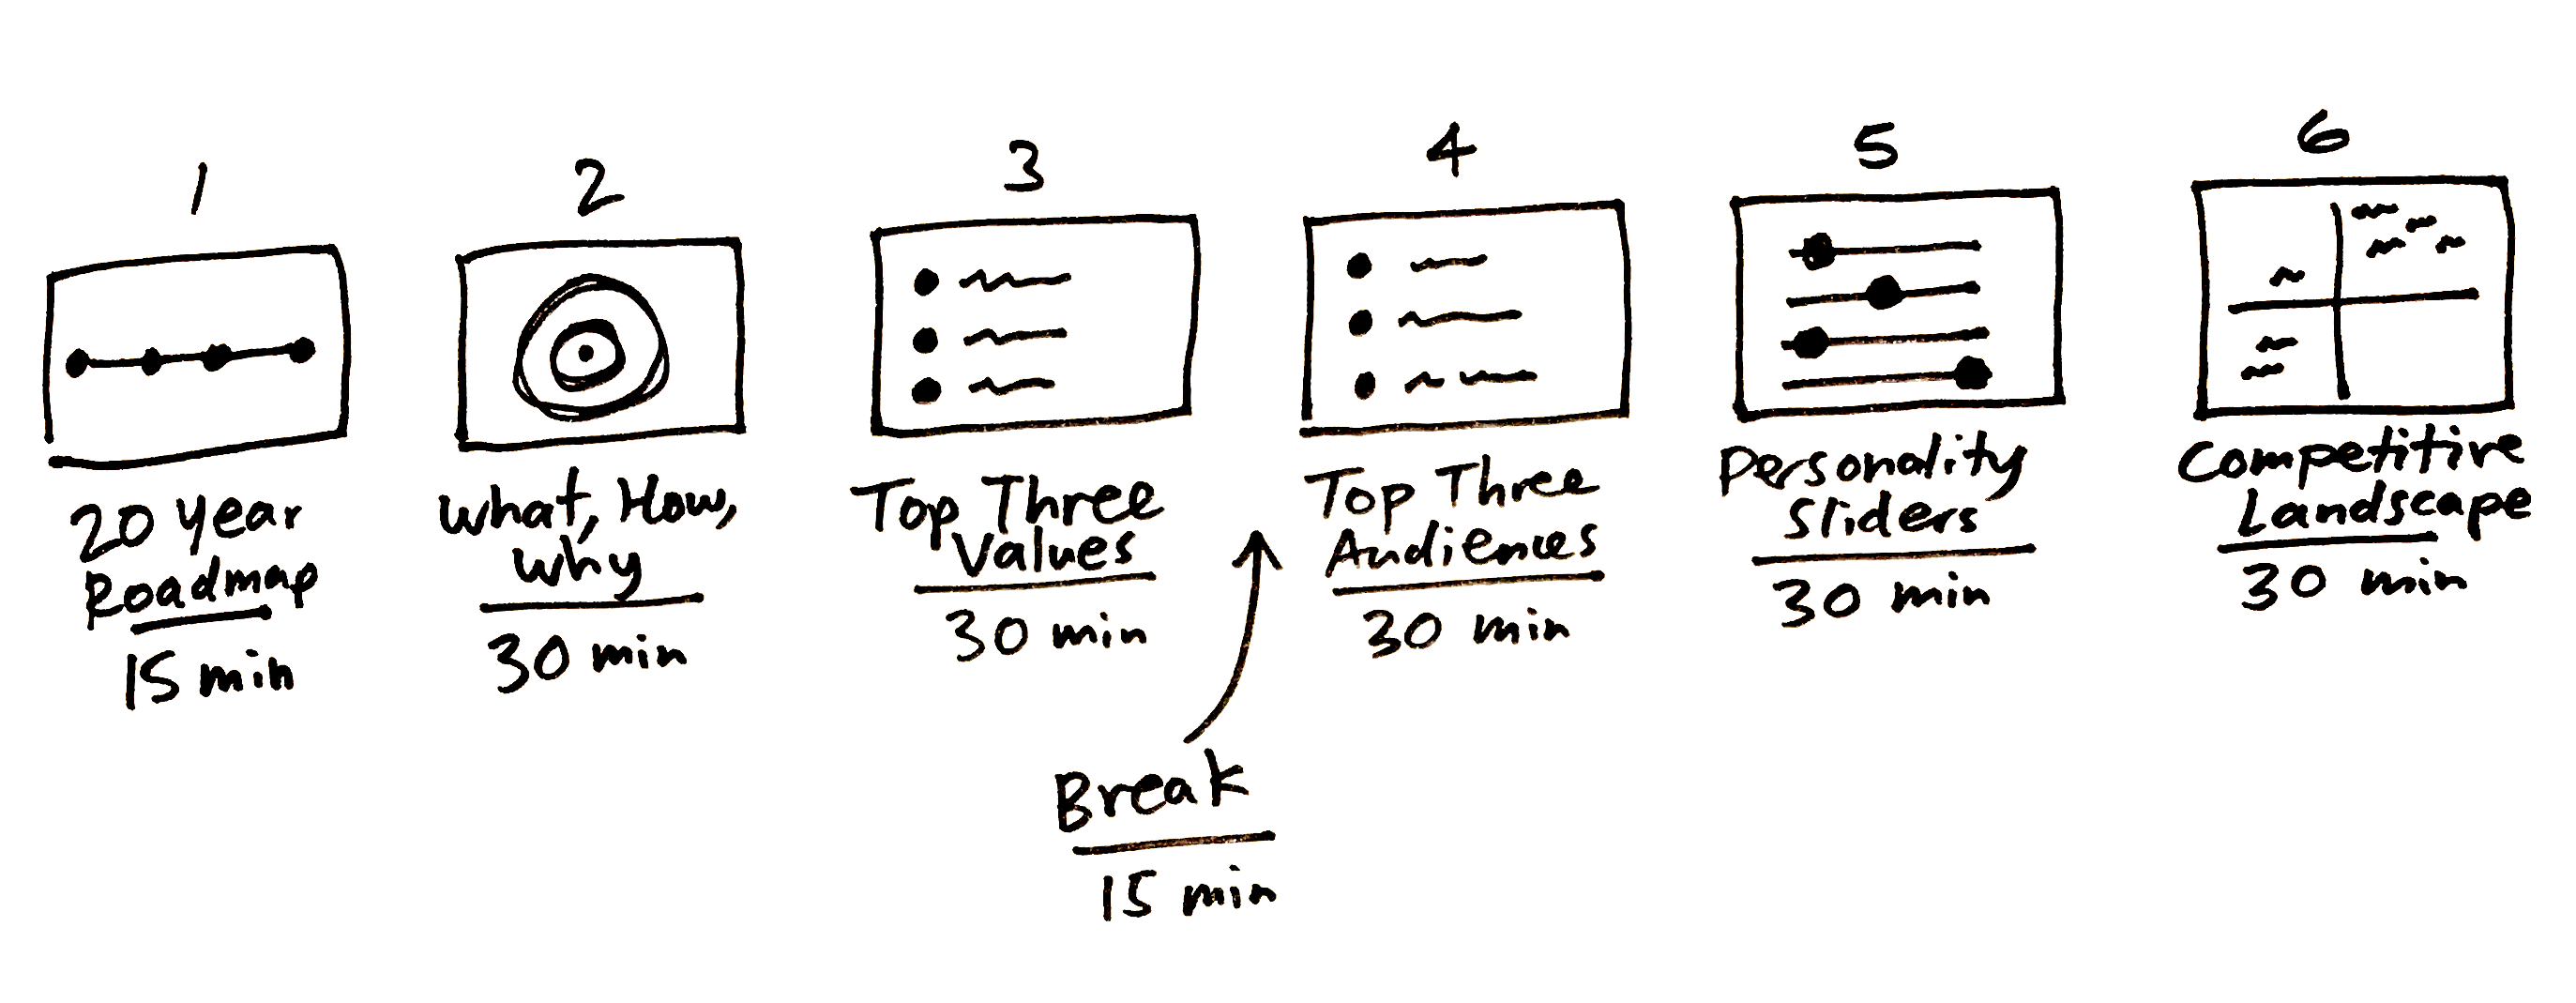 1
20 Year
Roadmap
15 min
2
What, How,
Why
30 min
3
Top Three
Values
30 min
Break
15 min
4
Top Three
Audiences
30 min
5
Personality
Sliders
30 min
6
Competitive
Landscape
30 min